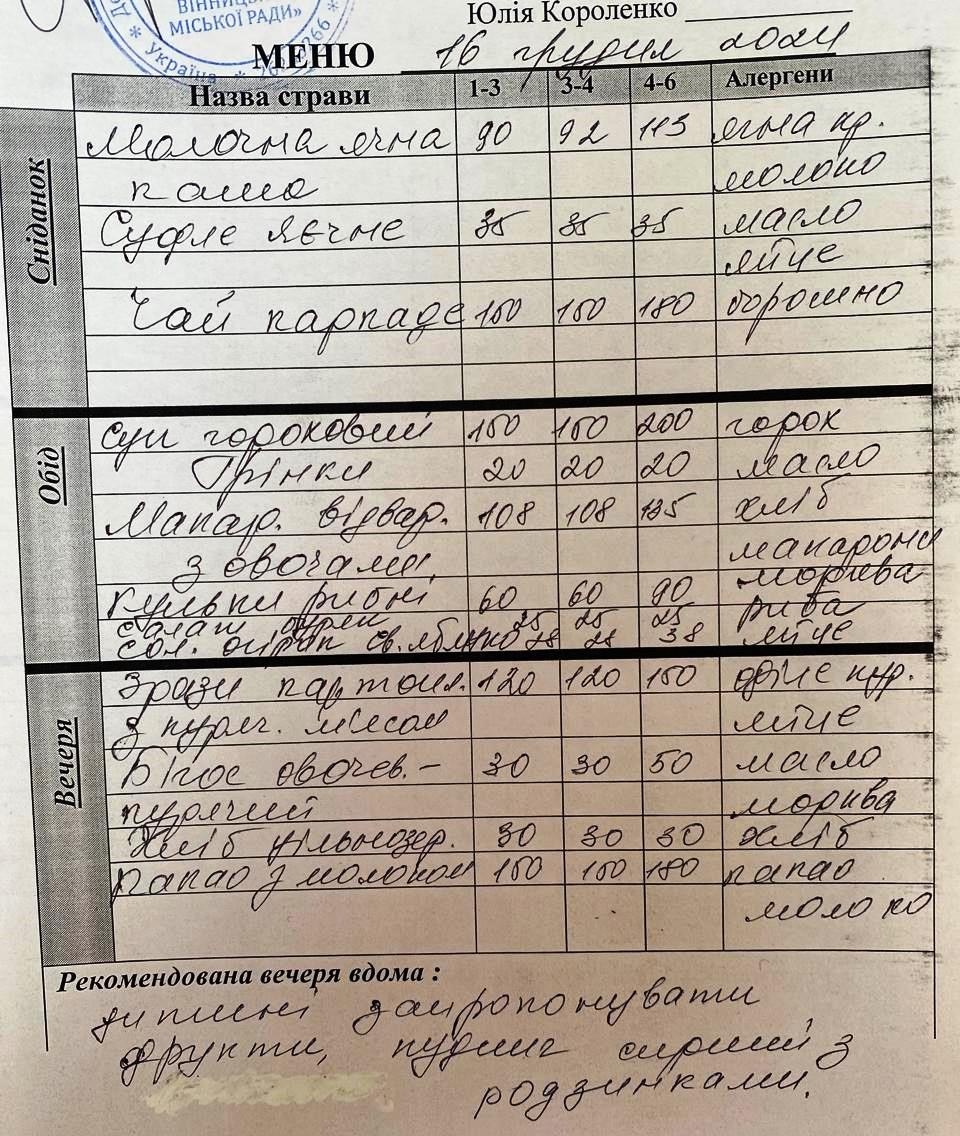 ВІННИЦЬ
МІСЬКОЇ РАДИ»
Україна
Юлія Короленко
МЕНЮ 16 грудня 2024
Назва страви 1-3 3-4 4-6 Алергени
Сніданок
Молочна ячна 90 92 113 ячна кр.
каша молоко
Суфле яєчне 35 35 35 масло
яйце
Чай каркаде 150 150 180 борошно
Обід
Суп гороховий 150 150 200 горох
Грінки 20 20 20 масло
Макар. відвар. 108 108 135 хліб
з овочами макарони
морква
Кульки рибні 60 60 90 риба
салат буряк 25 25 25 яйце
сол. огірок св. яблуко 28 28 38
Вечеря
Зрази картопл. 120 120 150 філе кур.
з куряч. мясом яйце
Бігос овочев.- 30 30 50 масло
курячий морква
Хліб цільнозер. 30 30 30 хліб
Какао з молоком 150 150 180 какао
молоко
Рекомендована вечеря вдома :
дитині запропонувати
фрукти, пудинг сирний з
родзинками.